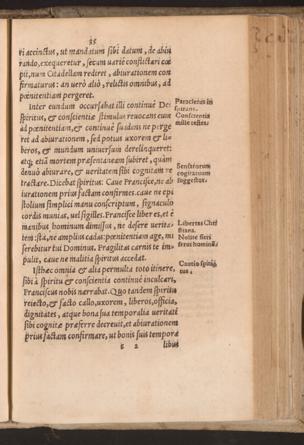 35
ri accinctus, ut mandatum sibi datum, de abiu
rando, exequeretur, secum varié conflictari cœ
pit, num Citadellam rediret, abiurationem con
firmaturus: an uerò aliò, relictis omnibus, ad
pœnitentiam pergeret.
Inter eundum occursabat illi continuè Dei
spiritus, & conscientiæ stimulus reuocans eum
ad pœnitentiam, & continuè suadens ne perge
ret ad abiurationem, sed potius uxorem & li-
beros, & mundum universum derelinqueret:
atq; etiã mortem præsentaneam subiret, quàm
denuò abiurare, & ueritatem sibi cognitam re
tractare. Dicebat spiritus: Caue Francisce, ne ab
iurationem prius factam confirmes. caue ne epi
stolium simplici manu conscriptum, signaculo
cordis munias, uel sigilles. Francisce liber es, et è
manibus hominum dimissus, ne desere uerita-
tem: sta, ne amplius cadas: pœnitentiam age, mi
serebitur tui Dominus. Fragilitas carnis te im-
pulit, caue ne malitia spiritus accedat.
Isthæc omnia & alia permulta toto itinere,
sibi à spiritu & conscientia continuè inculcari,
Franciscus nobis narrabat. Quo tandem spiritu
reiecto, & facto callo, uxorem, liberos, officia,
dignitates, atque bona sua temporalia ueritati
sibi cognitæ præferre decreuit, et abiurationem
prius factam confirmare, ut bonis suis tempora
2 libus
Paracletus in
Conscientia
mille testes.
Sanctorum
cogitatuum
suggestor.
Libertas Chri
stiana.
Nolite fieri
serui hominũ.
Cautio spiritu